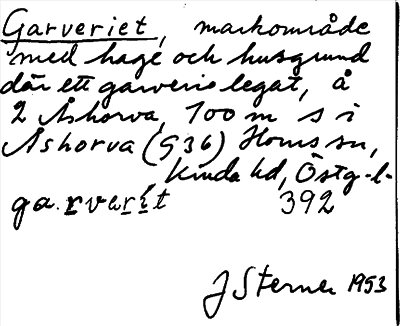 Garveriet, markområde
med hage och husgrund
där ett garveri legat, å
2 Åshorva, 100 m s i
Åshorva (936) Horns sn,
Kinda hd, Östg.l.
ga.rverit 392
J Sterner 1953